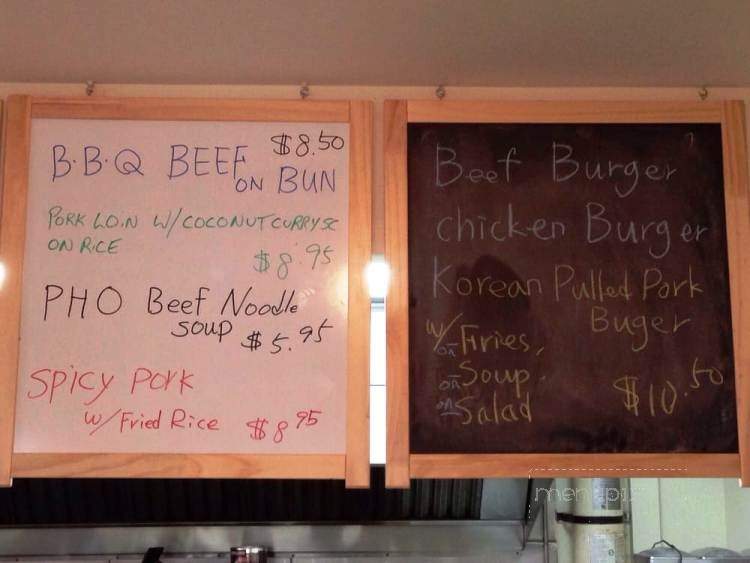 B·B·Q BEEF $8.50
ON BUN
PORK LOIN W/COCONUT CURRY SC
ON RICE
$8.95
PHO Beef Noodle
soup $5.95
SPICY Pork
w/ Fried Rice $8.95
Beef Burger
chicken Burger
Korean Pulled Pork
Buger
w/ Fries,
or Soup
or Salad
$10.50
menupix